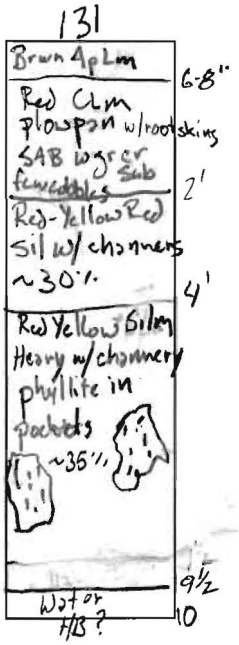 131
Brwn Ap Lm
6-8"
Red CLm
plowpan w/rootskins
SAB w grcr
few cobbles sub
2'
Red-Yellow Red
Sil w/ channers
~30%
4'
Red Yellow Silm
Heavy w/ channery
phyllite in
pockets
~35%
9½
Wat or
H/B ?
10